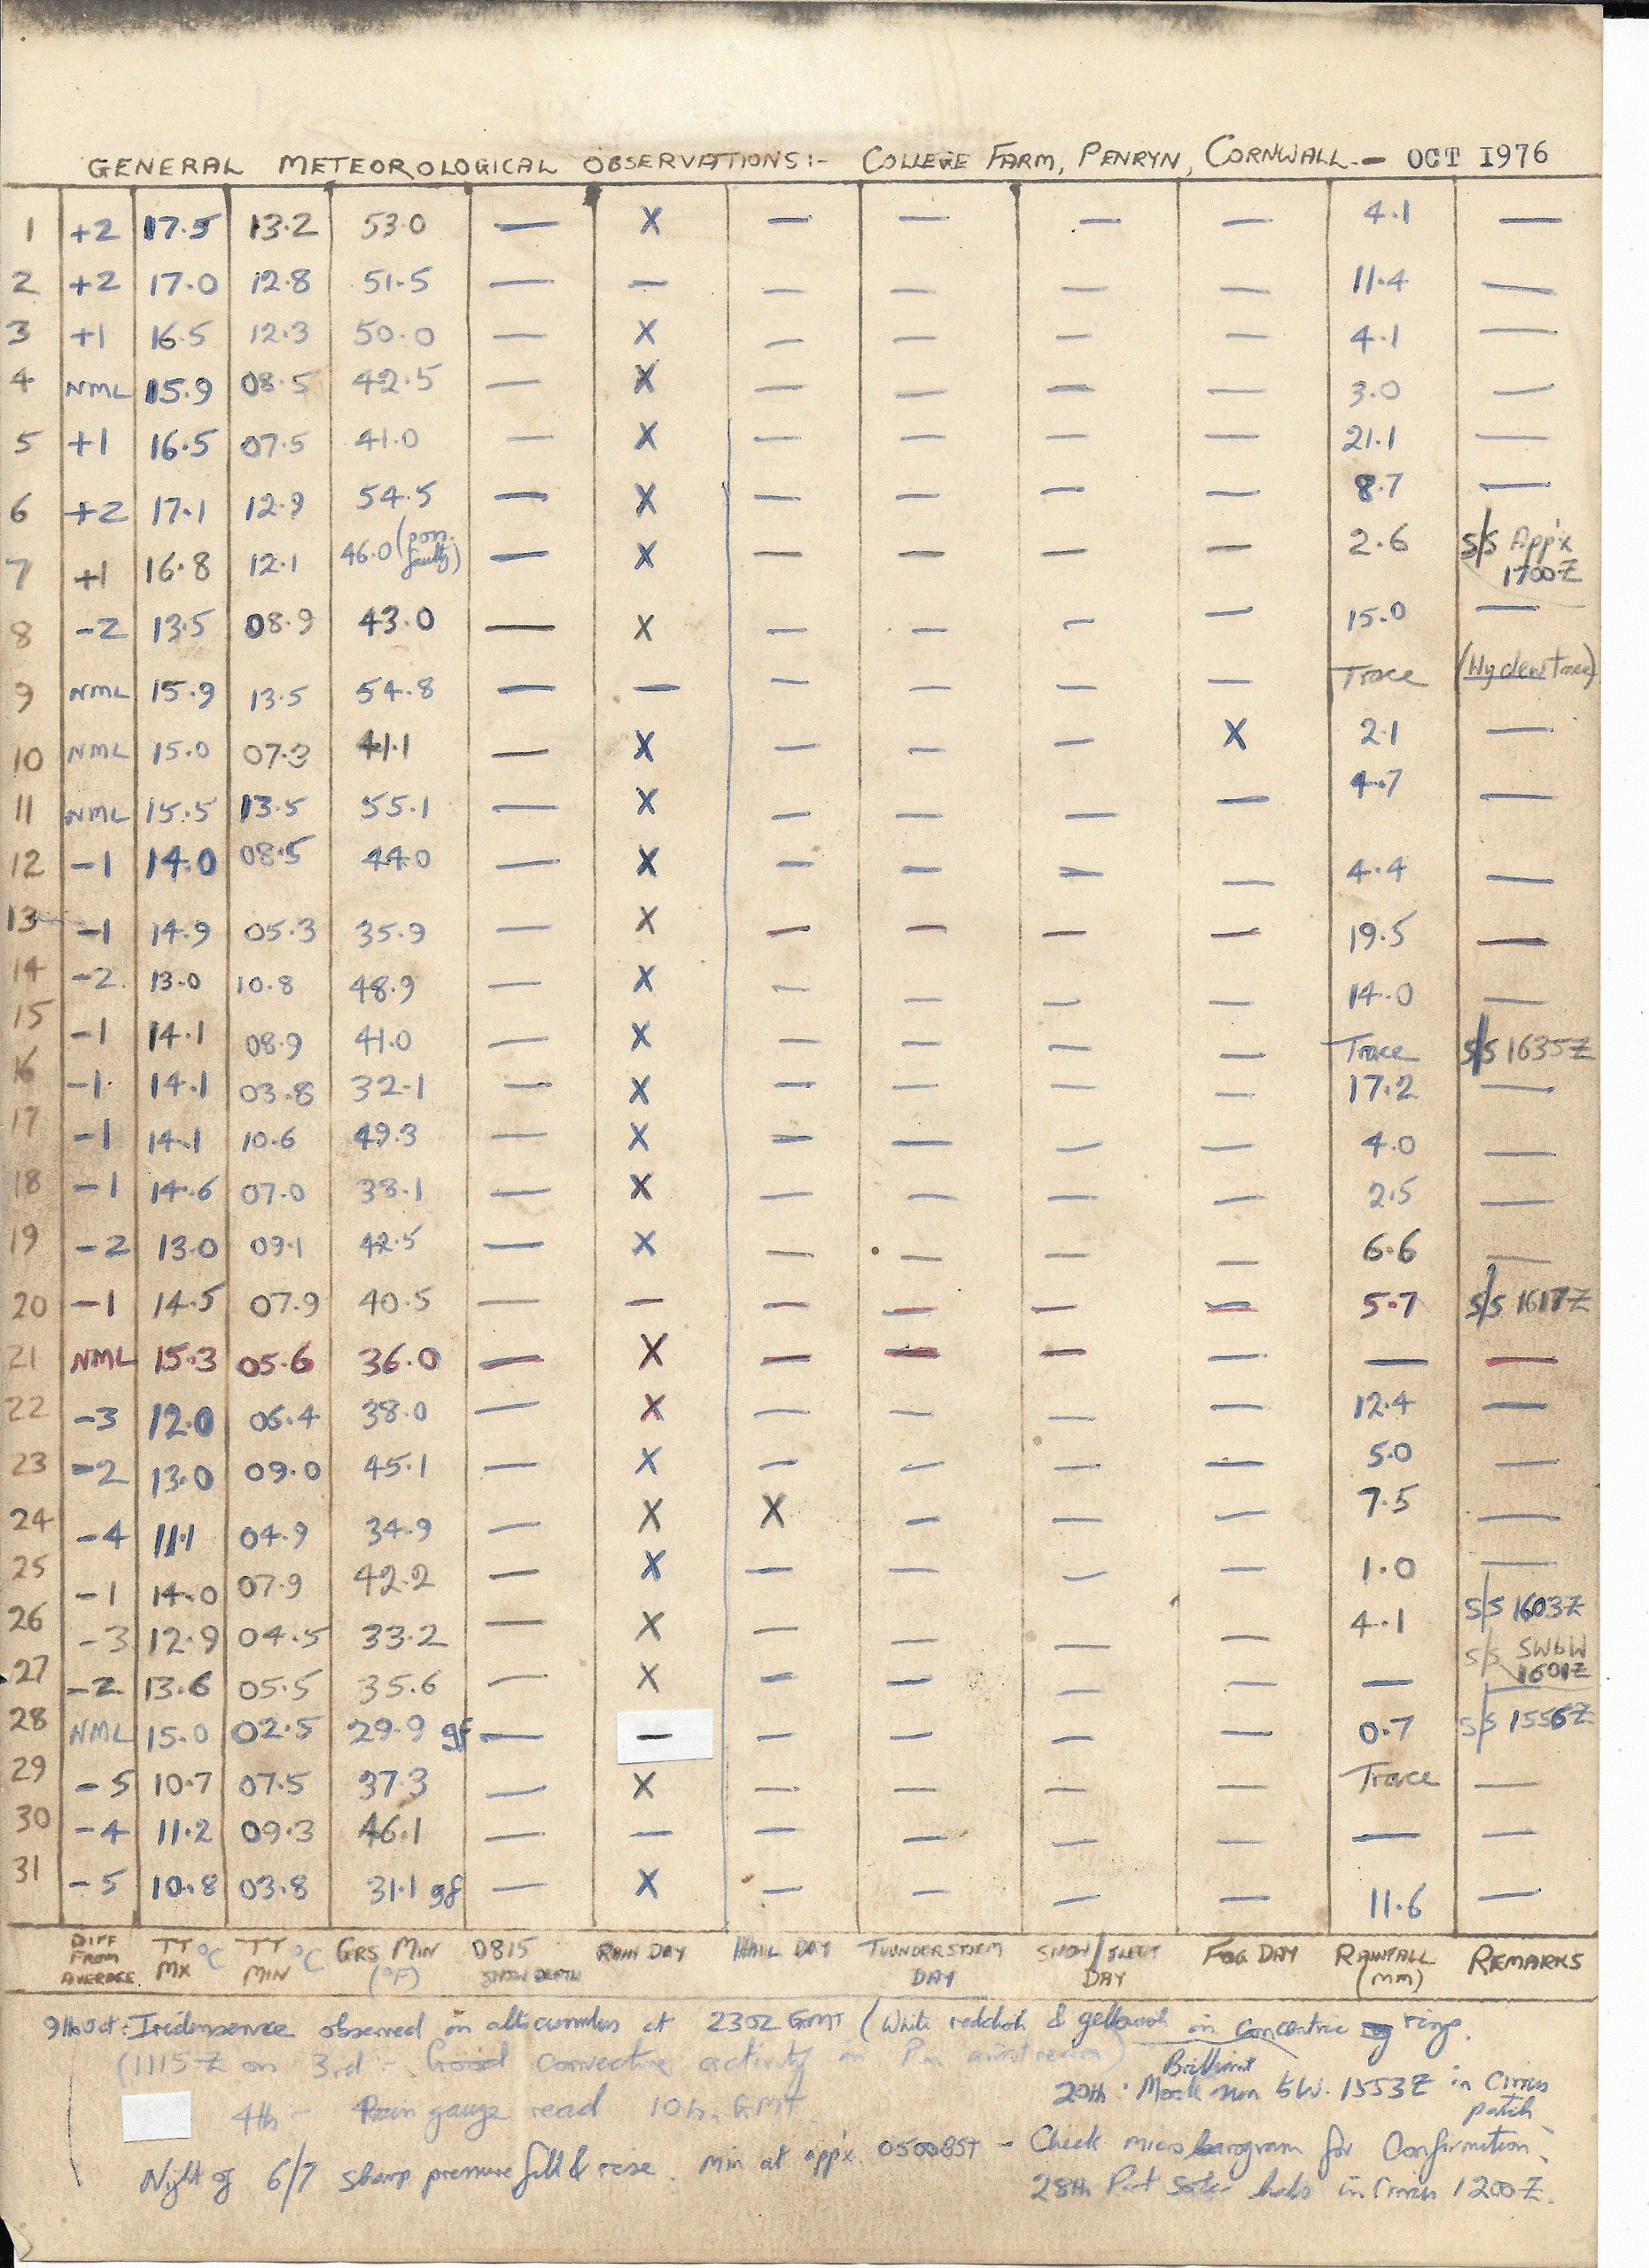 GENERAL METEOROLOGICAL OBSERVATIONS:- COLLEGE FARM, PENRYN, CORNWALL.- OCT 1976
1 +2 17.5 13.2 53.0 — X — — — — 4.1 —
2 +2 17.0 12.8 51.5 — — — — — — 11.4 —
3 +1 16.5 12.3 50.0 — X — — — — 4.1 —
4 NML 15.9 08.5 42.5 — X — — — — 3.0 —
5 +1 16.5 07.5 41.0 — X — — — — 21.1 —
6 +2 17.1 12.9 54.5 — X — — — — 8.7 —
7 +1 16.8 12.1 46.0 (poss. faulty) — X — — — — 2.6 S/S App'x 1700Z
8 -2 13.5 08.9 43.0 — X — — — — 15.0 —
9 NML 15.9 13.5 54.8 — — — — — — Trace (Hy dew trace)
10 NML 15.0 07.3 41.1 — X — — — X 2.1 —
11 NML 15.5 13.5 55.1 — X — — — — 4.7 —
12 -1 14.0 08.5 44.0 — X — — — — 4.4 —
13 -1 14.9 05.3 35.9 — X — — — — 19.5 —
14 -2 13.0 10.8 48.9 — X — — — — 14.0 —
15 -1 14.1 08.9 41.0 — X — — — — Trace S/S 1635Z
16 -1 14.1 03.8 32.1 — X — — — — 17.2 —
17 -1 14.1 10.6 49.3 — X — — — — 4.0 —
18 -1 14.6 07.0 38.1 — X — — — — 2.5 —
19 -2 13.0 09.1 42.5 — X — — — — 6.6 —
20 -1 14.5 07.9 40.5 — — — — — — 5.7 S/S 1617Z
21 NML 15.3 05.6 36.0 — X — — — — — —
22 -3 12.0 06.4 38.0 — X — — — — 12.4 —
23 -2 13.0 09.0 45.1 — X — — — — 5.0 —
24 -4 11.1 04.9 34.9 — X X — — — 7.5 —
25 -1 14.0 07.9 42.2 — X — — — — 1.0 —
26 -3 12.9 04.5 33.2 — X — — — — 4.1 S/S 1603Z
27 -2 13.6 05.5 35.6 — X — — — — S/S SWbW 1601Z
28 NML 15.0 02.5 29.9 gf — — — — — — 0.7 S/S 1556Z
29 -5 10.7 07.5 37.3 — X — — — Trace —
30 -4 11.2 09.3 46.1 — — — — — — — —
31 -5 10.8 03.8 31.1 gf — X — — — — 11.6 —
DIFF FROM AVERAGE TT MX °C TT MIN °C GRS MIN (°F) 0815 SNOW DEPTH RAIN DAY HAIL DAY THUNDERSTORM DAY SNOW/SLEET DAY FOG DAY RAINFALL (MM) REMARKS
9th Oct: Iridescence observed in altocumulus at 2302 GMT (White reddish & yellowish in concentric rings.
(1115Z on 3rd - Good convective activity in Pm airstream)
20th. Brilliant Mock sun 1553Z in Cirrus patch
4th - Rain gauge read 10h. GMT
Night of 6/7 sharp pressure fall & rise. Min at app'x 0500BST - Check microbarogram for Confirmation.
28th Part Solar halo in Cirrus 1200Z.